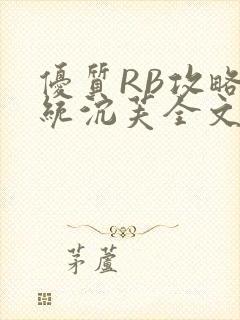 優質RB攻略
統沈芙全文
茅蘆